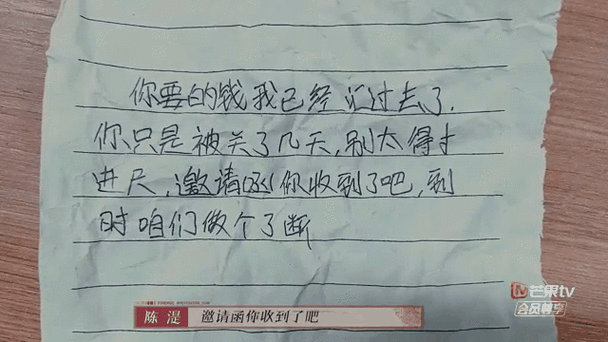 你要的钱我已经汇过去了.
你只是被关了几天,别太得寸
进尺,邀请函你收到了吧,到
时咱们做个了断
陈湜 邀请函你收到了吧
芒果tv
会员尊享